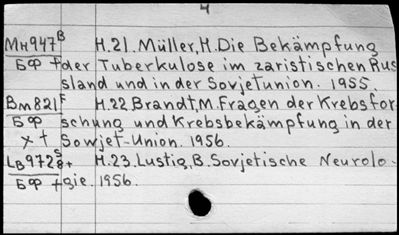 4
Мн947В Н.21. Müller, H. Die Bekämpfung
БФ + der Tuberkulose im zaristischen Rus
sland und in der Sovjetunion. 1955
Вм821F Н.22 Brandt, M. Fragen der Krebsfor-
БФ schung und Krebsbekämpfung in der
x + Sowjet-Union. 1956.
Lв9728S+ Н.23. Lustig, B. Sovjetische Neurolo-
БФ + gie. 1956.